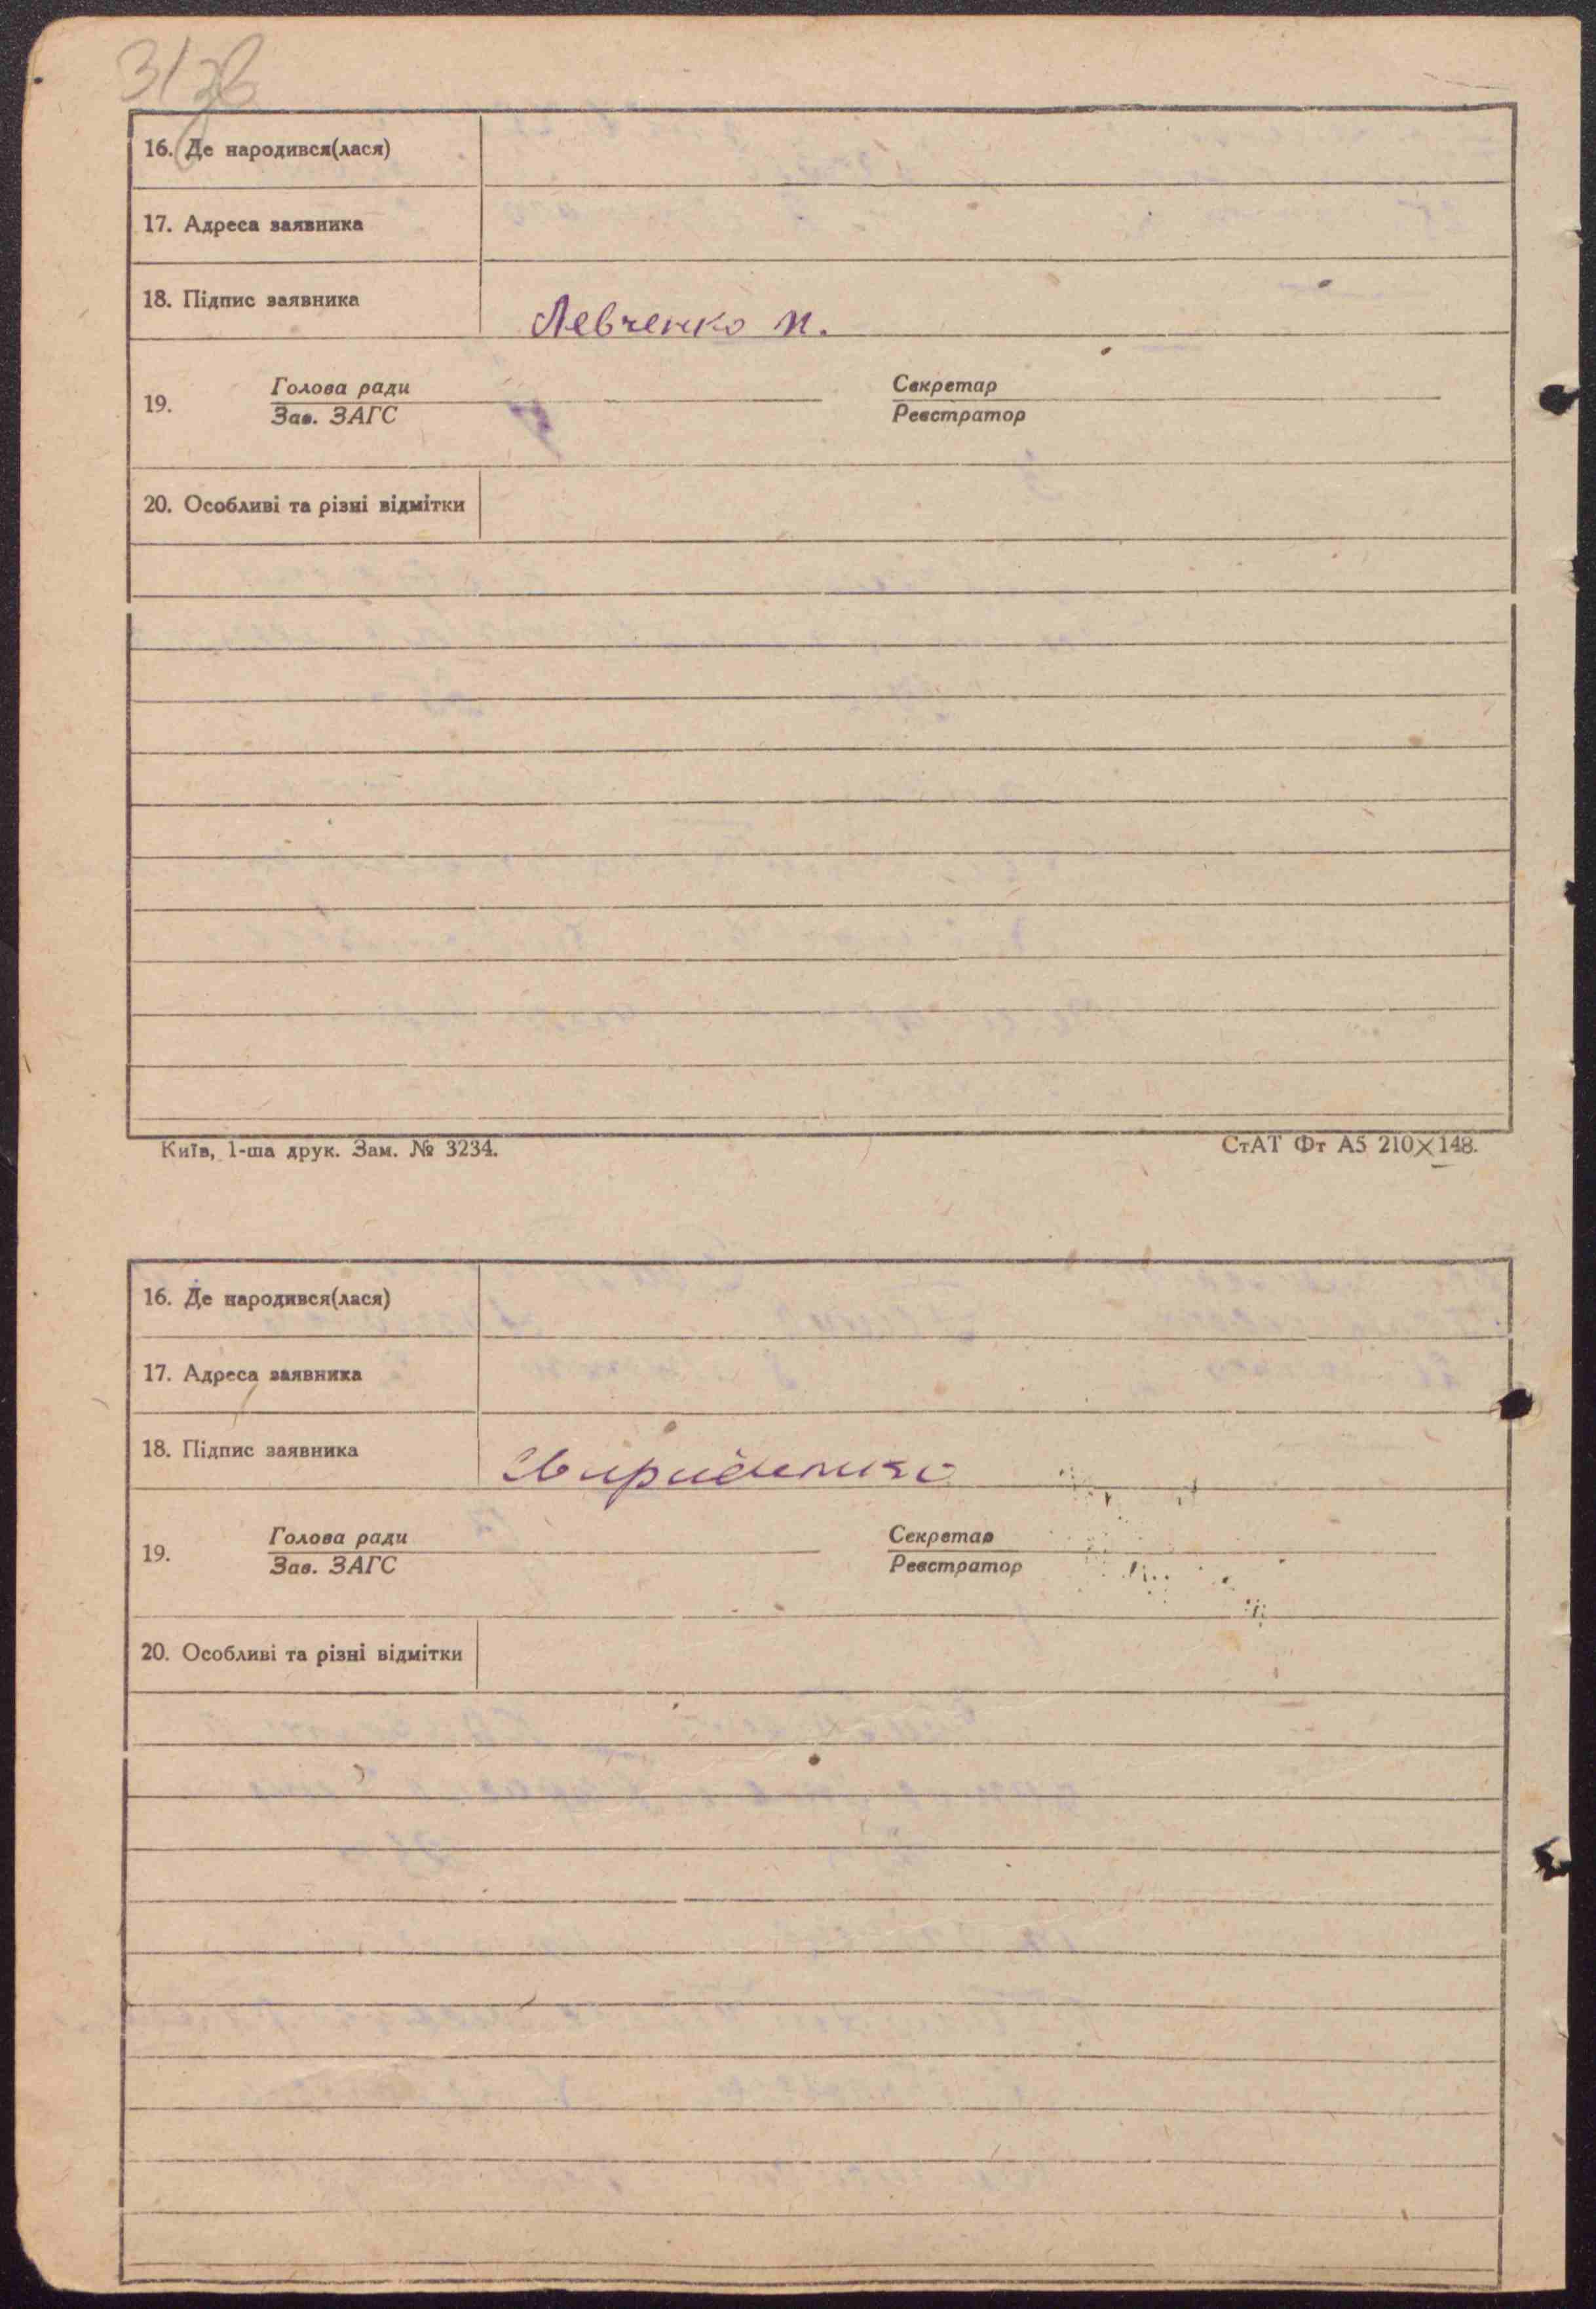 16. Де народився(лася)
17. Адреса заявника
18. Підпис заявника Левченко П.
Голова ради Секретар
19.
Зав. ЗАГС Реєстратор
20. Особливі та різні відмітки
Київ, 1-ша друк. Зам. № 3234. СтАТ Фт А5 210×148.
16. Де народився(лася)
17. Адреса заявника
18. Підпис заявника Свириденко
Голова ради Секретар
19.
Зав. ЗАГС Реєстратор
20. Особливі та різні відмітки